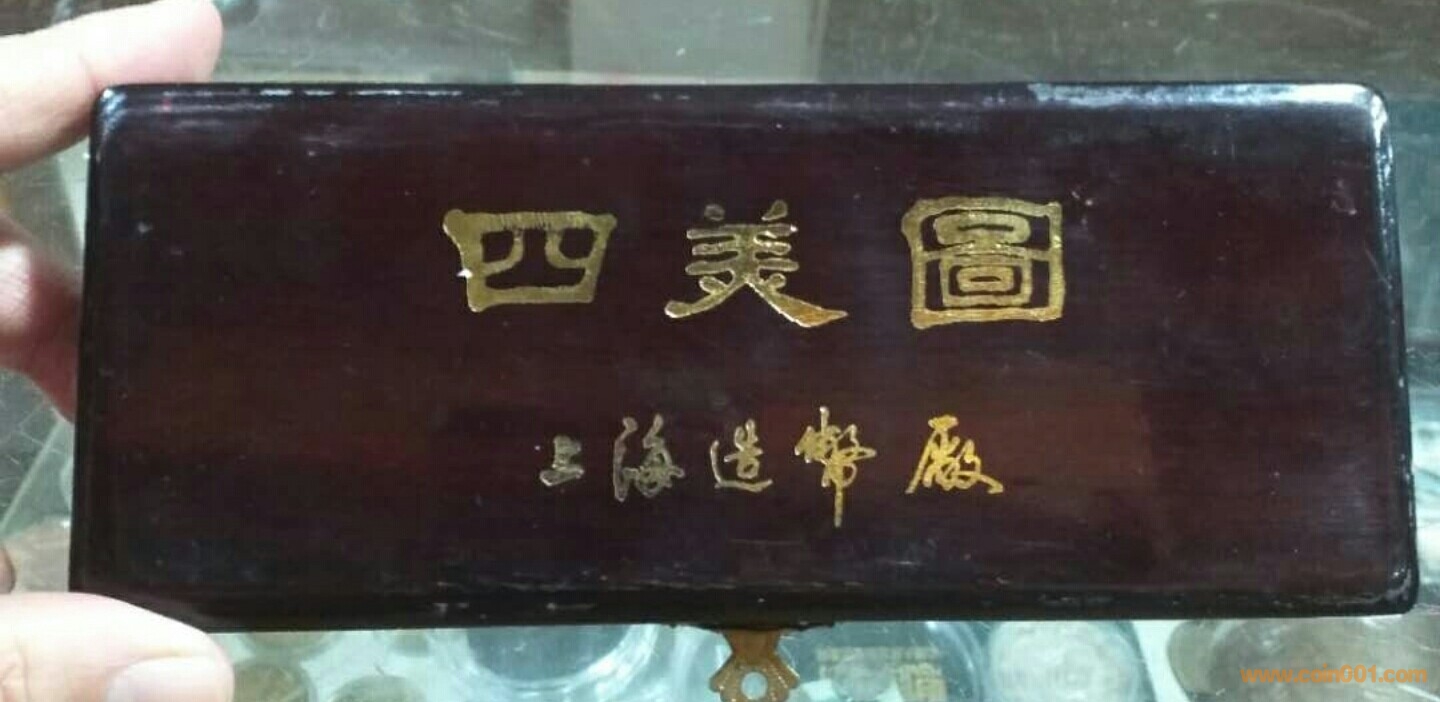 四美圖
上海造幣廠
www.coin001.com